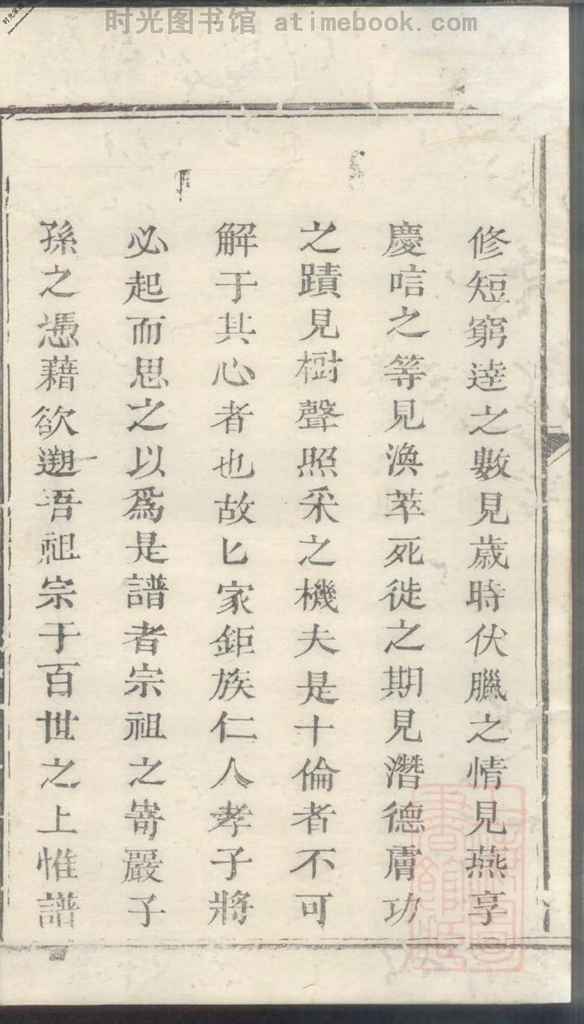 时光图书馆 atimebook.com
修短窮達之數見歲時伏臘之情見燕享
慶唁之等見渙萃死徙之期見潛德膚功
之蹟見樹聲照采之機夫是十倫者不可
解于其心者也故匕家鉅族仁人孝子將
必起而思之以爲是譜者宗祖之嵜嚴子
孫之憑藉欲遡吾祖宗于百世之上惟譜